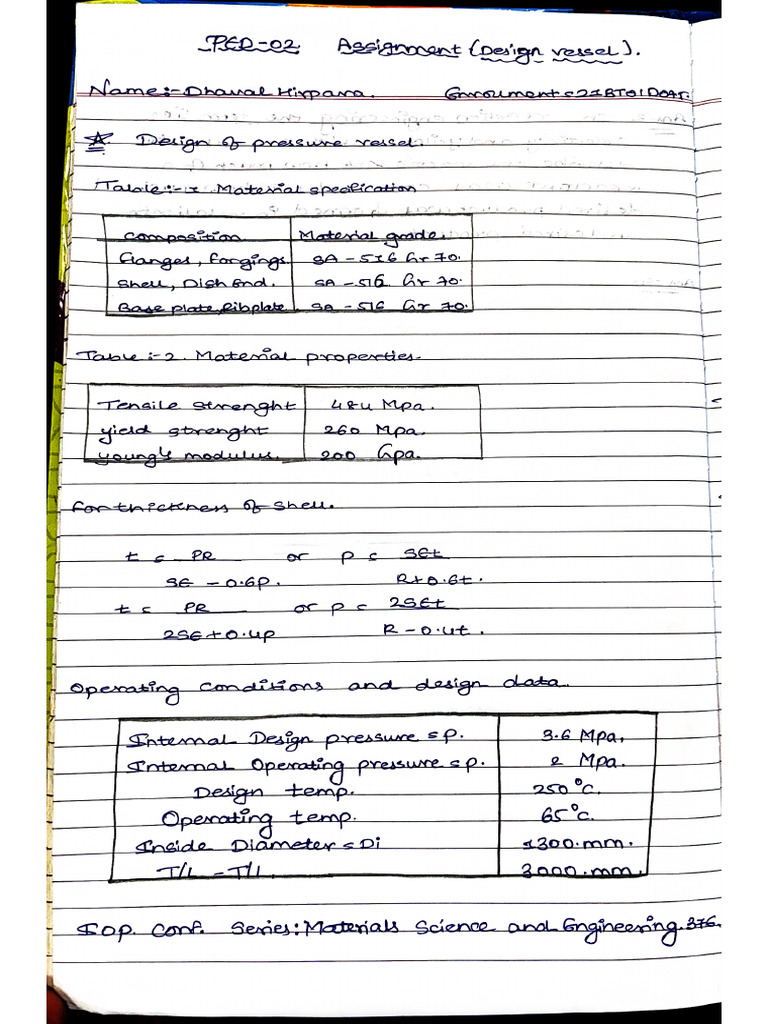 PED-02 Assignment (Design vessel).
Name:- Dhaval Hirpara. Enrollment = 21BT01D041.
Design of pressure vessel
Table:-1 Material specification
Composition Material grade.
flanges, forgings SA-516 Gr 70.
Shell, Dish End. SA-516 Gr 70.
Base plate, Ribplate SA-516 Gr 70.
Table:-2. Material properties.
Tensile strenght 484 Mpa.
yield strenght 260 Mpa.
young's modulus. 200 Gpa.
For thickness of shell.
t = PR / SE - 0.6p. or p = SEt / R+0.6t.
t = PR / 2SE+0.4p or p = 2SEt / R-0.4t.
Operating conditions and design data.
Internal Design pressure = p. 3.6 Mpa.
Internal Operating pressure = p. 2 Mpa.
Design temp. 250°c.
Operating temp. 65°c.
Inside Diameter = Di 1300.mm.
T/L - T/L. 3000.mm.
IOP. Conf. Series: Materials Science and Engineering.376.